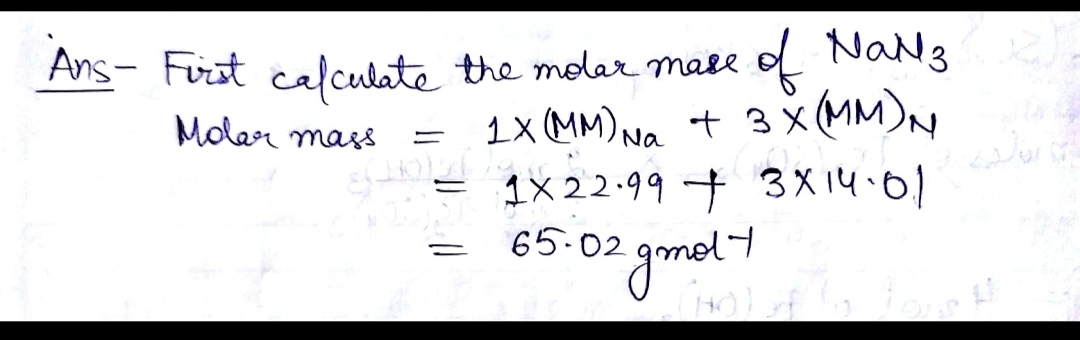 Ans- First calculate the molar mass of NaN3
Molar mass = 1X(MM)Na + 3X(MM)N
= 1X22.99 + 3X14.01
= 65.02 gmol-1